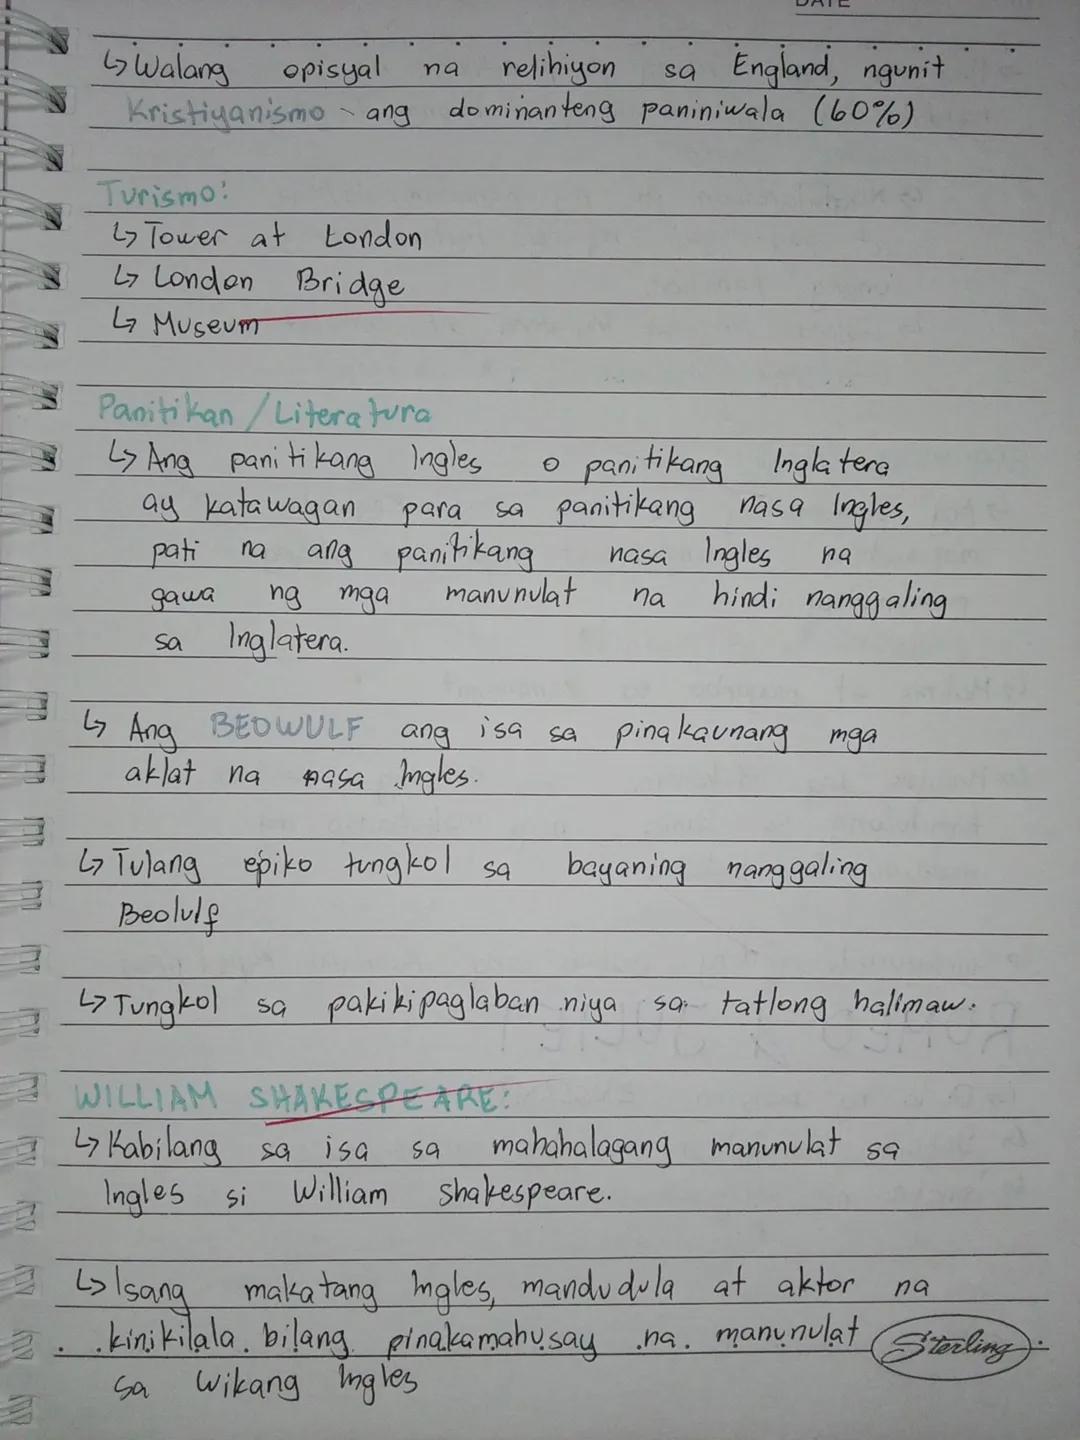 DATE
↳ Walang opisyal na relihiyon sa England, ngunit
Kristiyanismo - ang dominanteng paniniwala (60%)
Turismo:
↳ Tower at London
↳ London Bridge
↳ Museum
Panitikan / Literatura
↳ Ang panitikang Ingles o panitikang Inglatera
ay katawagan para sa panitikang nasa Ingles,
pati na ang panitikang nasa Ingles na
gawa ng mga manunulat na hindi nanggaling
sa Inglatera.
↳ Ang BEOWULF ang isa sa pinakaunang mga
aklat na nasa Ingles.
↳ Tulang epiko tungkol sa bayaning nanggaling
Beolulf
↳ Tungkol sa pakikipaglaban niya sa tatlong halimaw.
WILLIAM SHAKESPEARE:
↳ Kabilang sa isa sa mahahalagang manunulat sa
Ingles si William Shakespeare.
↳ Isang makatang Ingles, mandudula at aktor na
kinikilala bilang pinakamahusay na manunulat
sa Wikang Ingles
Sterling